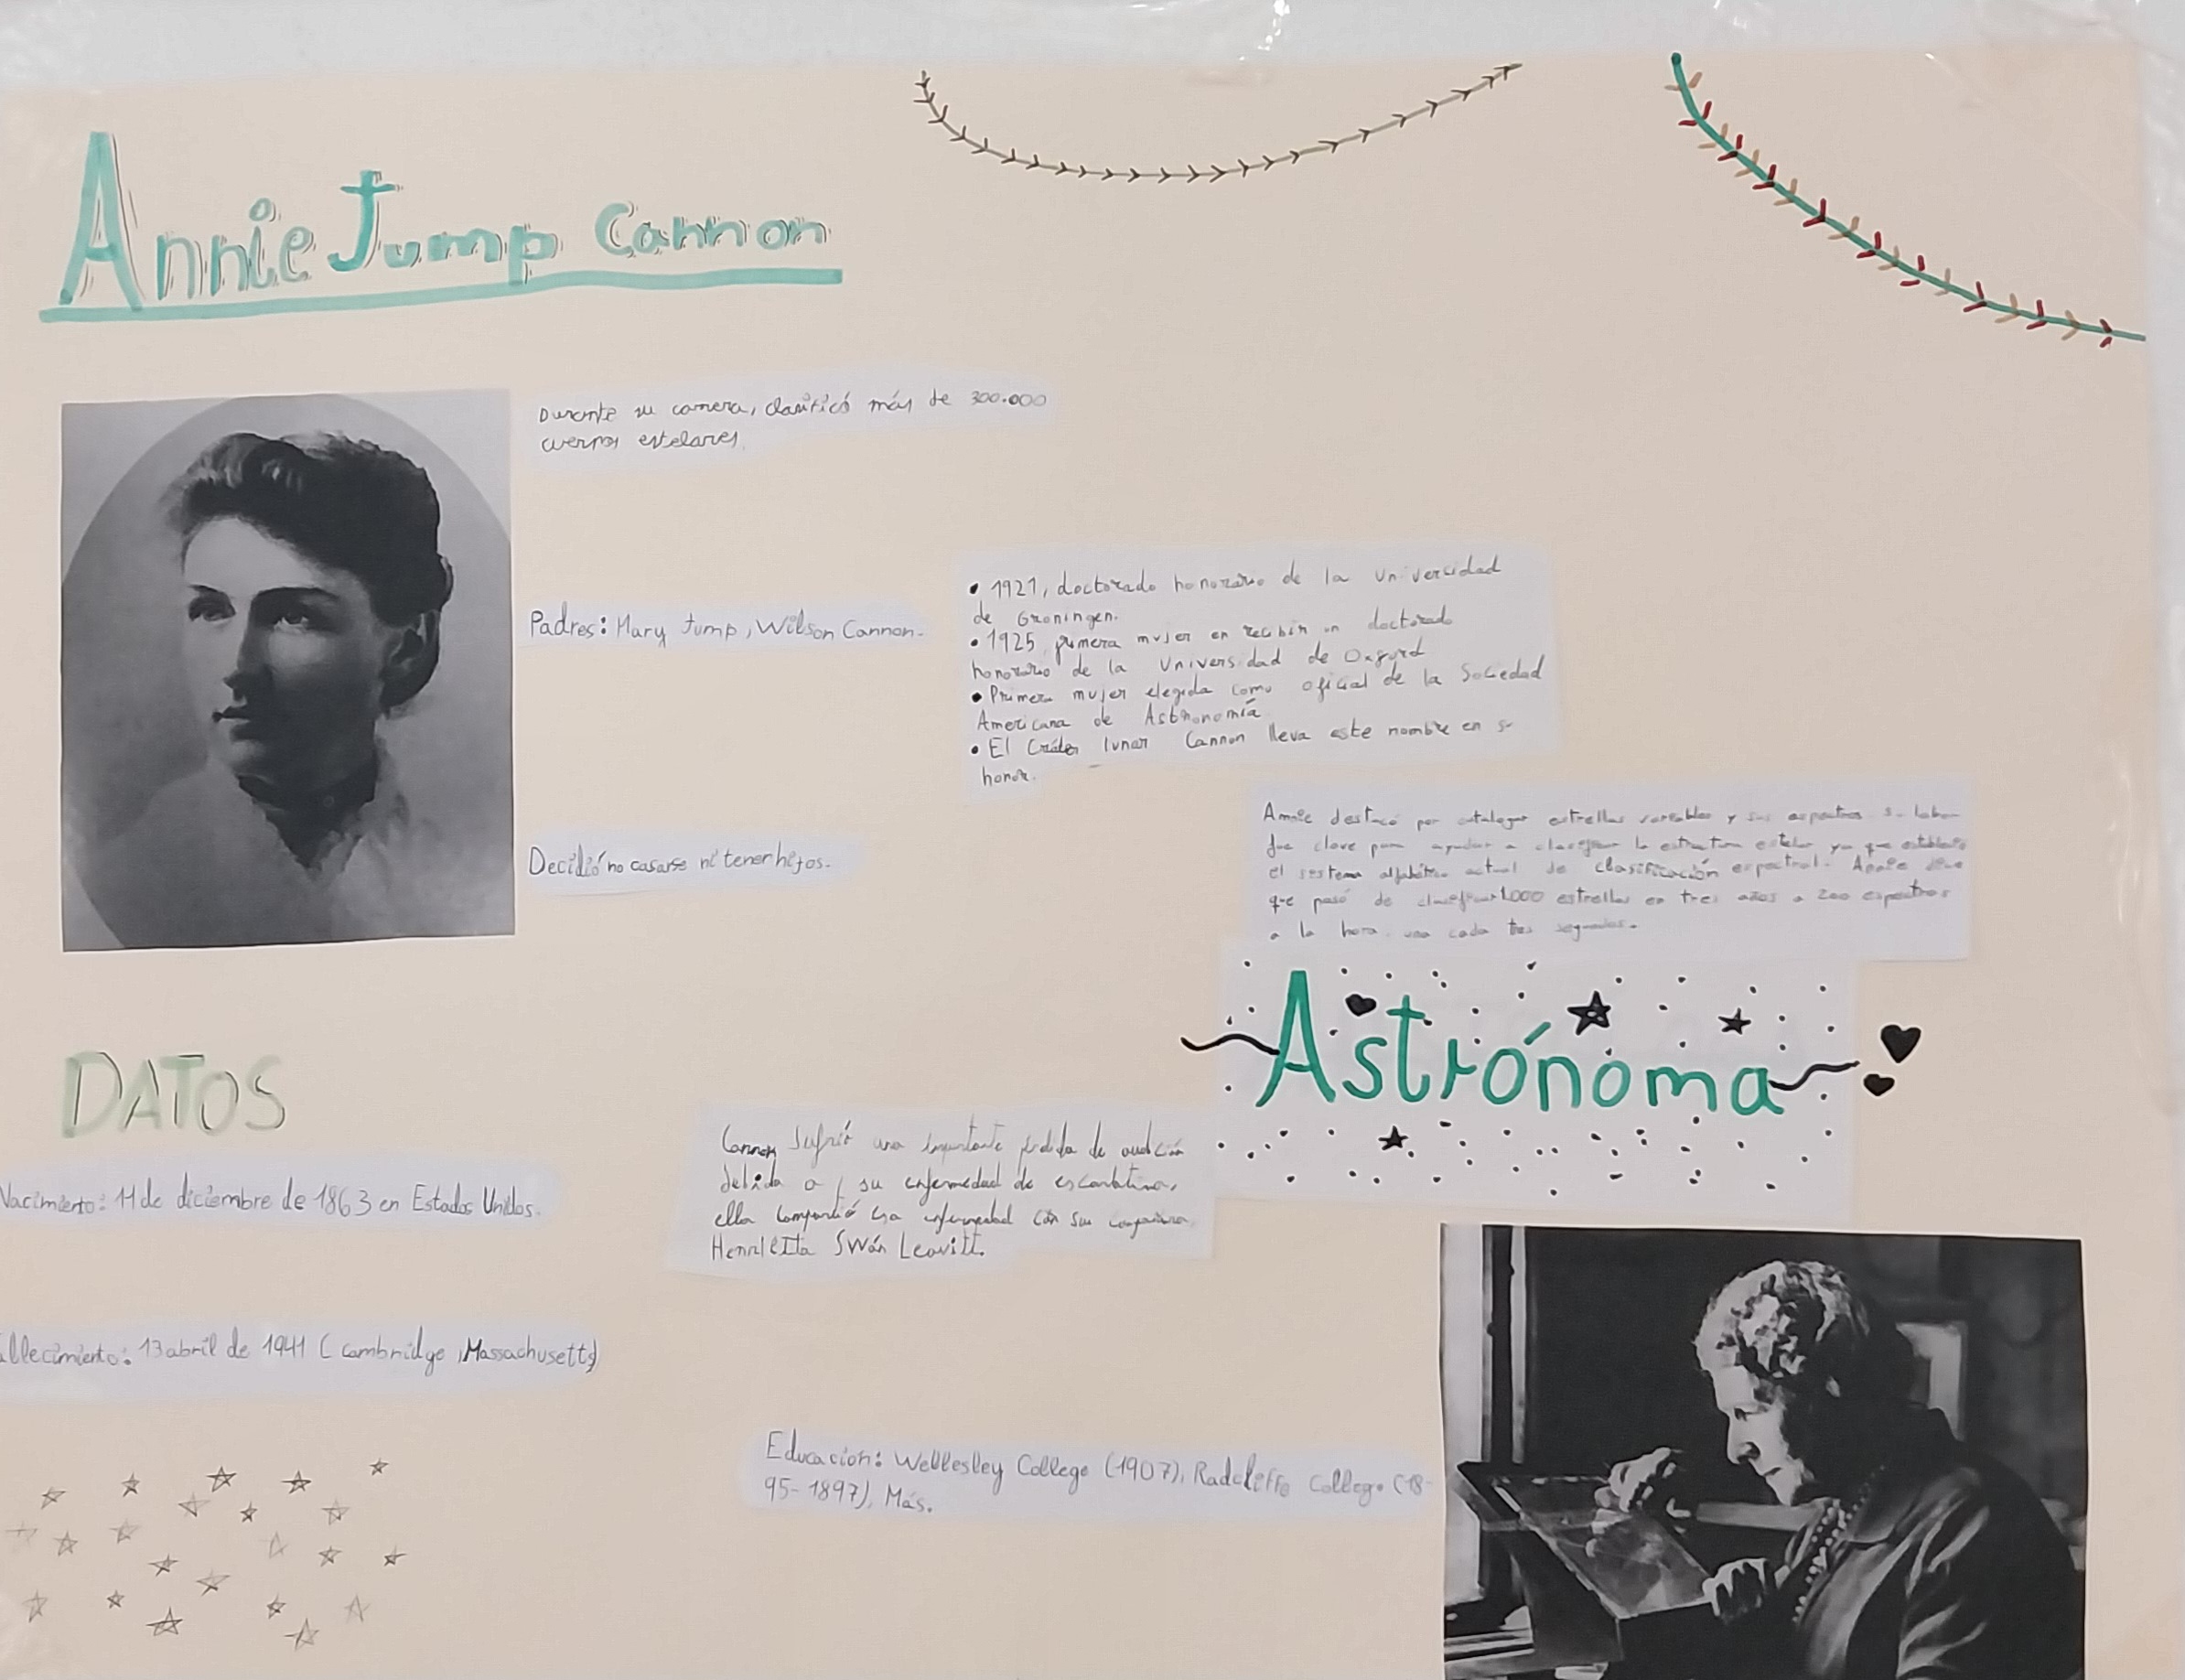 Annie Jump Cannon
Durante su carrera, clasificó más de 300.000
cuerpos estelares.
Padres: Mary Jump, Wilson Cannon.
• 1921, doctorado honorario de la Universidad
de Groningen.
• 1925 primera mujer en recibir un doctorado
honorario de la Universidad de Oxford
• Primera mujer elegida como oficial de la Sociedad
Americana de Astronomía
• El Cráter lunar Cannon lleva este nombre en su
honor.
Decidió no casarse ni tener hijos.
Annie destacó por catalogar estrellas variables y sus espectros. Su labor
fue clave para ayudar a clasificar la estructura estelar ya que estableció
el sistema alfabético actual de clasificación espectral. Annie
que pasó de clasificar 1.000 estrellas en tres años a 200 espectros
a la hora. una cada tres segundos.
Astrónoma
DATOS
Nacimiento: 11 de diciembre de 1863 en Estados Unidos.
Cannon sufrió una importante pérdida de audición
debida a su enfermedad de escarlatina,
ella compartió esa enfermedad con su compañera
Henrietta Swan Leavitt.
allecimiento: 13 abril de 1941 (Cambridge, Massachusetts)
Educación: Wellesley College (1907), Radcliffe College (18-
95-1897), Más.